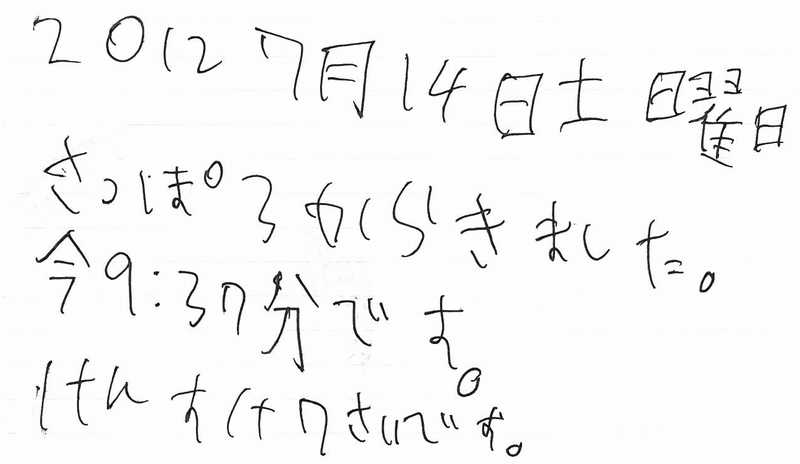 2012 7月14日土曜日
さっぽろからきました。
今9:37分です。
けんすけ7さいです。